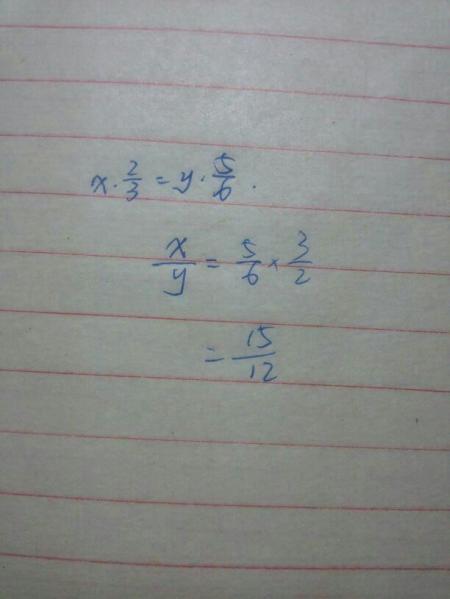 x · 2/3 = y · 5/6 .
x/y = 5/6 × 3/2
= 15/12